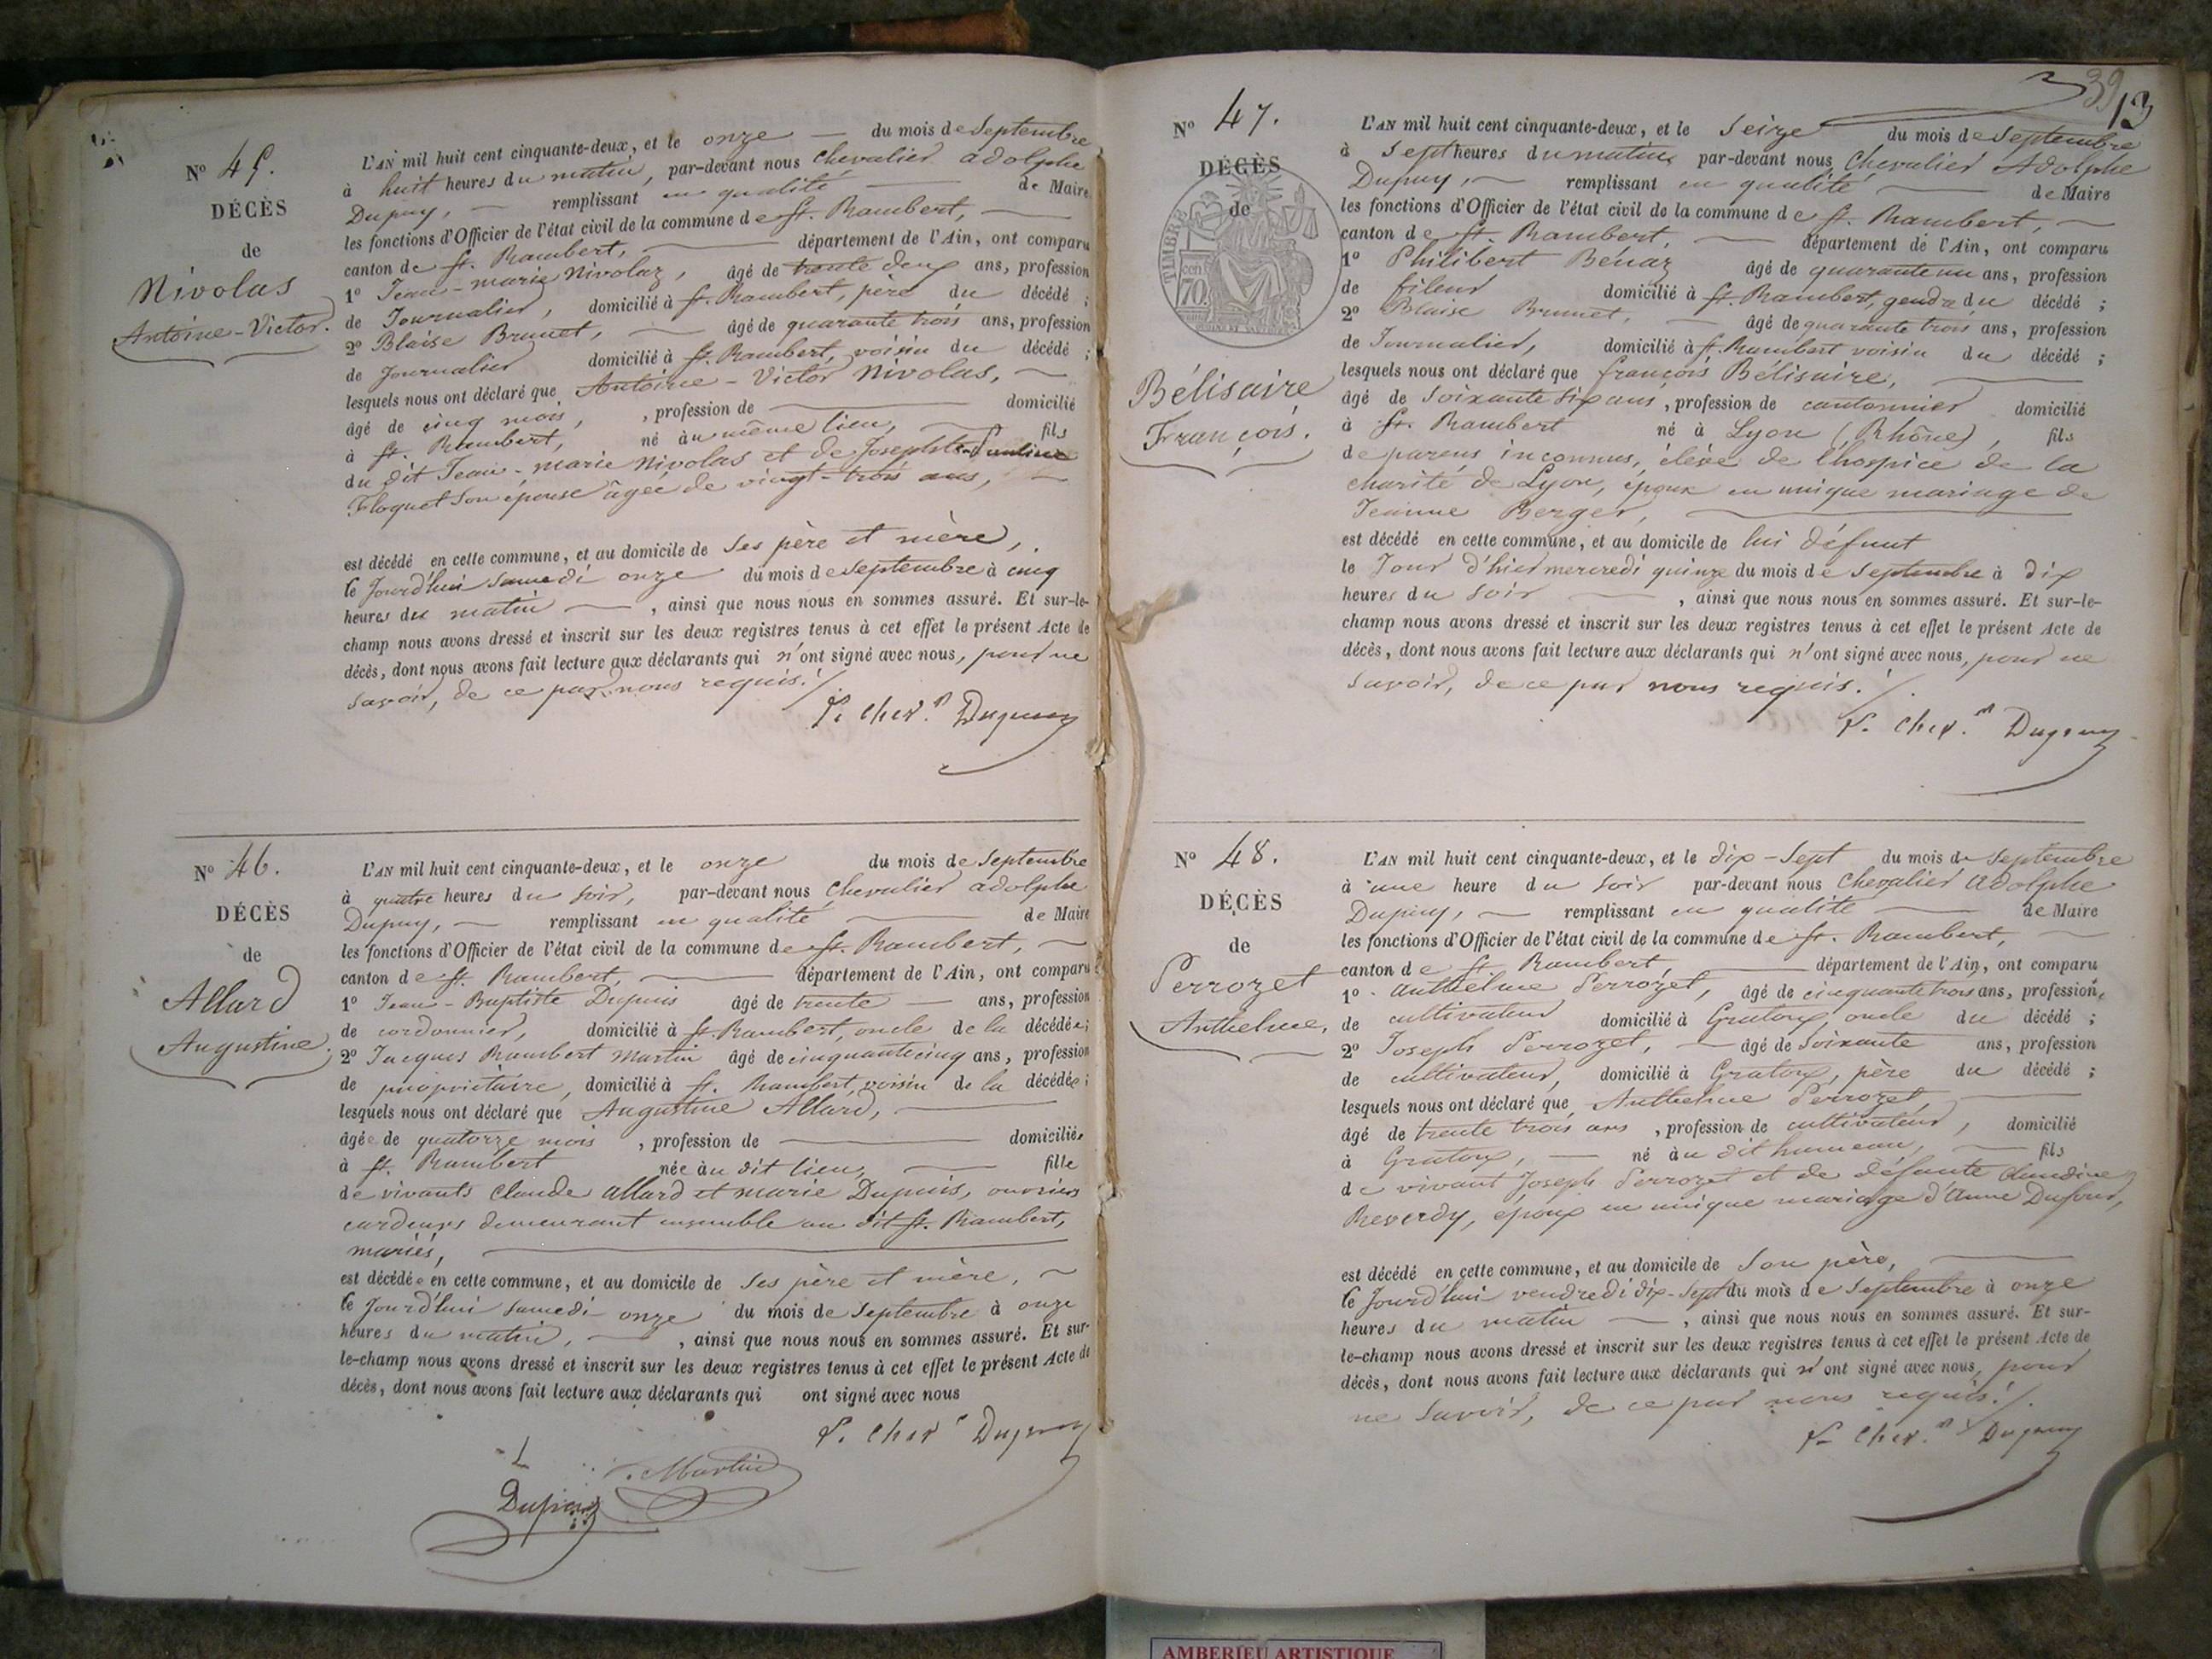 No 45.
DÉCÈS
de
Nivolas
Antoine-Victor.
L'AN mil huit cent cinquante-deux, et le onze du mois de Septembre
à huit heures du matin, par-devant nous Chevalier adolphe
Dupuy, remplissant en qualité de Maire
les fonctions d'Officier de l'état civil de la commune de St. Rambert,
canton de St. Rambert, département de l'Ain, ont comparu
1º Jean-marie Nivolaz, âgé de trente deux ans, profession
de Journalier, domicilié à St. Rambert, père du décédé ;
2º Blaise Brunet, âgé de quarante trois ans, profession
de Journalier domicilié à St. Rambert, voisin du décédé ;
lesquels nous ont déclaré que Antoine-Victor Nivolas,
âgé de cinq mois, , profession de domicilié
à St. Rambert, né au même lieu, fils
du dit Jean-marie Nivolas et de Josephte
Floquet son épouse âgée de vingt-trois ans,
est décédé en cette commune, et au domicile de Ses père et mère,
le Jourd'hui Samedi onze du mois de Septembre à cinq
heures du matin , ainsi que nous nous en sommes assuré. Et sur-le-
champ nous avons dressé et inscrit sur les deux registres tenus à cet effet le présent Acte de
décès, dont nous avons fait lecture aux déclarants qui n'ont signé avec nous, pour ne
Savoir, de ce par nous requis./.
Cher. Dupuy
No 46.
DÉCÈS
de
Allard
Augustine.
L'AN mil huit cent cinquante-deux, et le onze du mois de Septembre
à quatre heures du soir, par-devant nous Chevalier adolphe
Dupuy, remplissant en qualité de Maire
les fonctions d'Officier de l'état civil de la commune de St. Rambert,
canton de St. Rambert, département de l'Ain, ont comparu
1º Jean-Baptiste Dupuis âgé de trente ans, profession
de cordonnier, domicilié à St. Rambert, oncle de la décédée ;
2º Jacques Rambert Martin âgé de cinquante cinq ans, profession
de propriétaire, domicilié à St. Rambert, voisin de la décédée ;
lesquels nous ont déclaré que Augustine Allard,
âgée de quatorze mois , profession de domiciliée
à St. Rambert née au dit lieu, fille
de vivants Claude allard et marie Dupuis, ouvriers
cardeurs demeurant ensemble au dit St. Rambert,
mariés,
est décédée en cette commune, et au domicile de Ses père et mère,
le Jourd'hui Samedi onze du mois de Septembre à onze
heures du matin, , ainsi que nous nous en sommes assuré. Et sur-
le-champ nous avons dressé et inscrit sur les deux registres tenus à cet effet le présent Acte de
décès, dont nous avons fait lecture aux déclarants qui ont signé avec nous
Cher Dupuy
Martin
Dupuis
39
13
No 47.
DÉCÈS
de
TIMBRE
cen
70.
Bélisaire
François.
L'AN mil huit cent cinquante-deux, et le Seize du mois de Septembre
à Sept heures du matin, par-devant nous Chevalier Adolphe
Dupuy, remplissant en qualité de Maire
les fonctions d'Officier de l'état civil de la commune de St. Rambert,
canton de St. Rambert, département de l'Ain, ont comparu
1º Philibert Bénaz âgé de quarante un ans, profession
de fileur domicilié à St. Rambert, gendre du décédé ;
2º Blaise Brunet, âgé de quarante trois ans, profession
de Journalier, domicilié à St. Rambert voisin du décédé ;
lesquels nous ont déclaré que françois Bélisaire,
âgé de Soixante Six ans, profession de cantonnier domicilié
à St. Rambert né à Lyon (Rhône), fils
de parens inconnus, élève de l'hospice de la
charité de Lyon, époux en unique mariage de
Jeanne Berger,
est décédé en cette commune, et au domicile de lui défunt
le Jour d'hier mercredi quinze du mois de Septembre à dix
heures du soir , ainsi que nous nous en sommes assuré. Et sur-le-
champ nous avons dressé et inscrit sur les deux registres tenus à cet effet le présent Acte de
décès, dont nous avons fait lecture aux déclarants qui n'ont signé avec nous, pour ne
Savoir, de ce par nous requis./.
Cher. Dupuy
No 48.
DÉCÈS
de
Perrozet
Anthelme.
L'AN mil huit cent cinquante-deux, et le dix-Sept du mois de Septembre
à une heure du soir par-devant nous Chevalier adolphe
Dupuy, remplissant en qualité de Maire
les fonctions d'Officier de l'état civil de la commune de St. Rambert,
canton de St. Rambert, département de l'Ain, ont comparu
1º Anthelme Perrozet, âgé de cinquante trois ans, profession,
de cultivateur domicilié à Gratoux, oncle du décédé ;
2º Joseph Perrozet, âgé de Soixante ans, profession
de cultivateur, domicilié à Gratoux, père du décédé ;
lesquels nous ont déclaré que Anthelme Perrozet,
âgé de trente trois ans , profession de cultivateur, domicilié
à Gratoux, né au dit hameau, fils
de vivant Joseph Perrozet et de défunte Claudine
Reverdy, époux en unique mariage d'Anne Dufour,
est décédé en cette commune, et au domicile de Son père,
le Jourd'hui vendredi dix-Sept du mois de Septembre à onze
heures du matin , ainsi que nous nous en sommes assuré. Et sur-
le-champ nous avons dressé et inscrit sur les deux registres tenus à cet effet le présent Acte de
décès, dont nous avons fait lecture aux déclarants qui n'ont signé avec nous, pour
ne Savoir, de ce par nous requis./.
Cher. Dupuy
AMBERIEU ARTISTIQUE